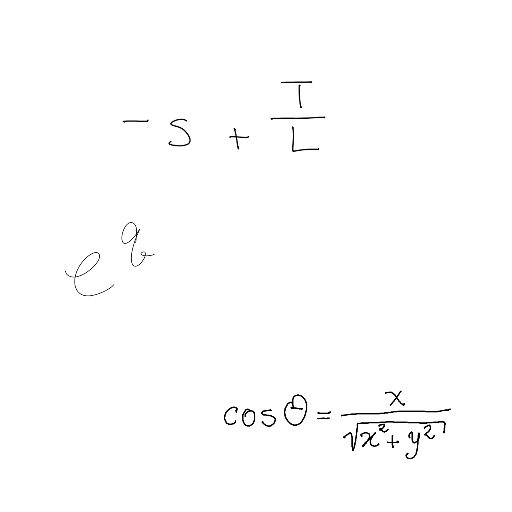 -s + \frac{T}{L}
e^q
cos θ = \frac{x}{\sqrt{x^2 + y^2}}